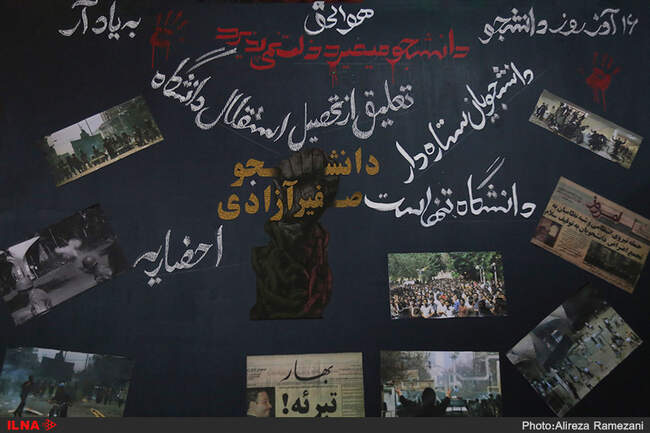 هوالحق
۱۶ آذر روز دانشجو
به یاد آر
دانشجو میمیرد ذلت نمی‌پذیرد
دانشجویان ستاره دار
تعلیق از تحصیل
استقلال دانشگاه
دانشجو
صفیر آزادی
دانشگاه تنهاست
احضاریه
امروز
بهار
تبرئه!
ILNA
Photo:Alireza Ramezani